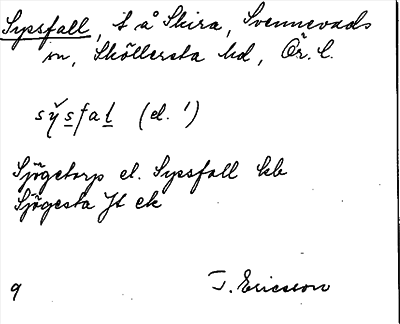 Sypsfall, t å Skira, Svennevads
sn, Sköllersta hd, Ör. l.
sy̆sfal (el. ')
Sjögetorp el. Sypsfall kb
Sjögesta Jt ek
9 J. Ericsson